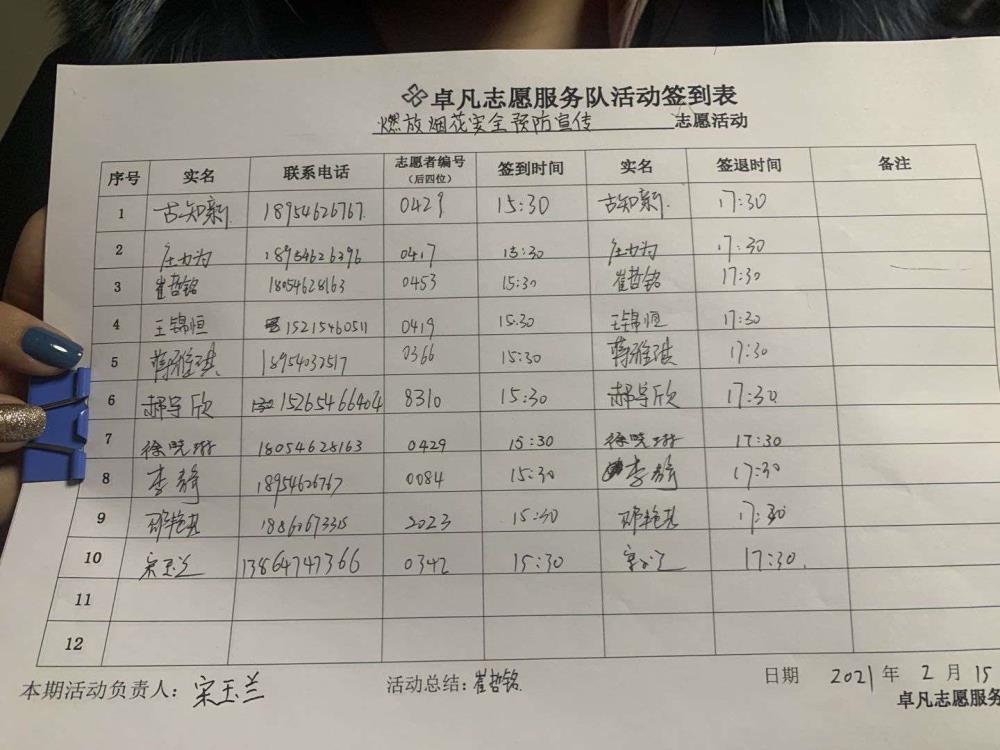 卓凡志愿服务队活动签到表
燃放烟花安全预防宣传 志愿活动
序号 实名 联系电话 志愿者编号 签到时间 实名 签退时间 备注
（后四位）
1 古知新 18954626767 0429 15:30 古知新 17:30
2 庄力为 18954626396 0417 15:30 庄力为 17:30
3 崔哲铭 18054628163 0453 15:30 崔哲铭 17:30
4 王锦恒 15215460511 0419 15:30 王锦恒 17:30
5 蒋雅琪 18954032517 0366 15:30 蒋雅琪 17:30
6 郝导欣 15265466404 8310 15:30 郝导欣 17:30
7 徐晓琳 18054628163 0429 15:30 徐晓琳 17:30
8 李静 18954626767 0084 15:30 李静 17:30
9 邓艳其 2023 15:30 邓艳其 17:30
10 宋玉兰 13864747366 0342 15:30 宋玉兰 17:30
11
12
本期活动负责人：宋玉兰 活动总结：崔哲铭 日期 2021 年 2 月 15
卓凡志愿服务